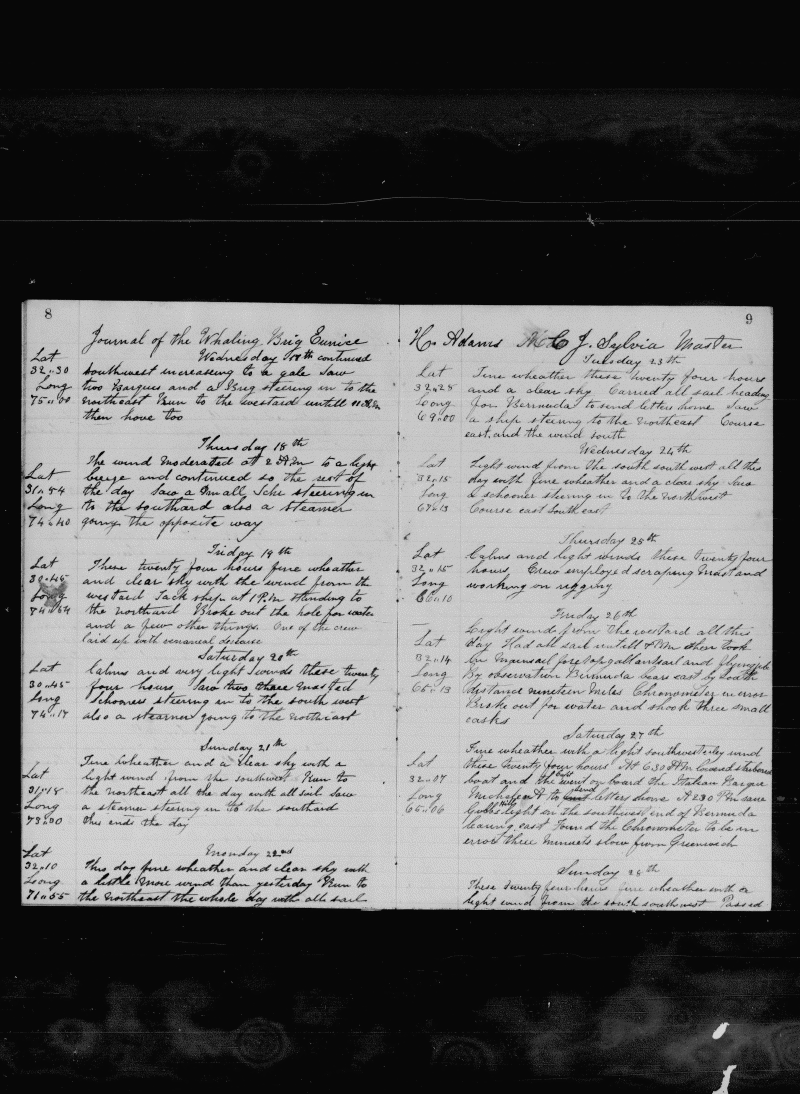 8
Journal of the Whaling Brig Eunice
Wednesday continued
Lat
32"30
Long
75"00
Southwest increaseing to a gale Saw
two Barques and a Brig steering in to the
Northeast Run to the westard untill
then hove too
Thursday 18th
Lat
31"54
Long
74"40
The wind moderated at 2 AM to a light
breeze and continued so the rest of
the day Saw a small Schr steering in
to the southard also a steamer
going the opposite way
Friday 19th
Lat
30"45
Long
74"54
These twenty four hours fine wheather
and clear sky with the wind from the
westard Tack ship at 1 P.M standing to
the northard Broke out the hole for water
and a few other things. One of the crew
laid up with venarueal desease
Saturday 20th
Lat
30"45
Long
74"17
Calms and very light winds these twenty
four hours Saw two three masted
Schooners steering in to the south west
also a steamer going to the northeast
Sunday 21th
Lat
31"18
Long
73"00
Fine wheather and a clear sky with a
light wind from the southwest Run to
the northeast all the day with all sail Saw
a steamer steering in to the southard
this ends the day
Monday 22nd
Lat
32"10
Long
71"55
This day fine wheather and clear sky with
a little more wind than yesterday Run to
the northeast the whole day with all sail
9
H. Adams J. Sylvia Master
Tuesday 23th
Lat
32"28
Long
69"00
Fine wheather these twenty four hours
and a clear sky Carried all sail heading
for Bermuda to send letters home Saw
a ship steering to the Northeast Course
east and the wind south
Wednesday 24th
Lat
32"15
Long
67"13
Light wind from the south south west all this
day with fine wheather and a clear sky Saw
a schooner steering in to the north west
Course east South east
Thursday 25th
Lat
32"15
Long
66"10
Calms and light winds these twenty four
hours, Crew employed scraping Mast and
working on rigging
Friday 26th
Lat
32"14
Long
65"13
Light wind from the westard all this
day Had all sail untill PM when took
in mainsail foretopgallantsail and flyingjib
By observation Bermuda bears east by South
distance nineteen Miles Chronometer in error
Broke out for water and shook three small
casks
Saturday 27th
Lat
32"07
Long
65"06
Fine wheather with a light southwesterly wind
these twenty four hours At 6.30 AM lowered starboard
boat and the Capt went on board the Italian Barque
A to send letters home At 2.30 P.M saw
Gibbs Hill light on the southwest end of Bermuda
bearing east Found the Chronometer to be in
error three minuets slow from Greenwich
Sunday 28th
These twenty four hours fine wheather with a
light wind from the south southwest Passed